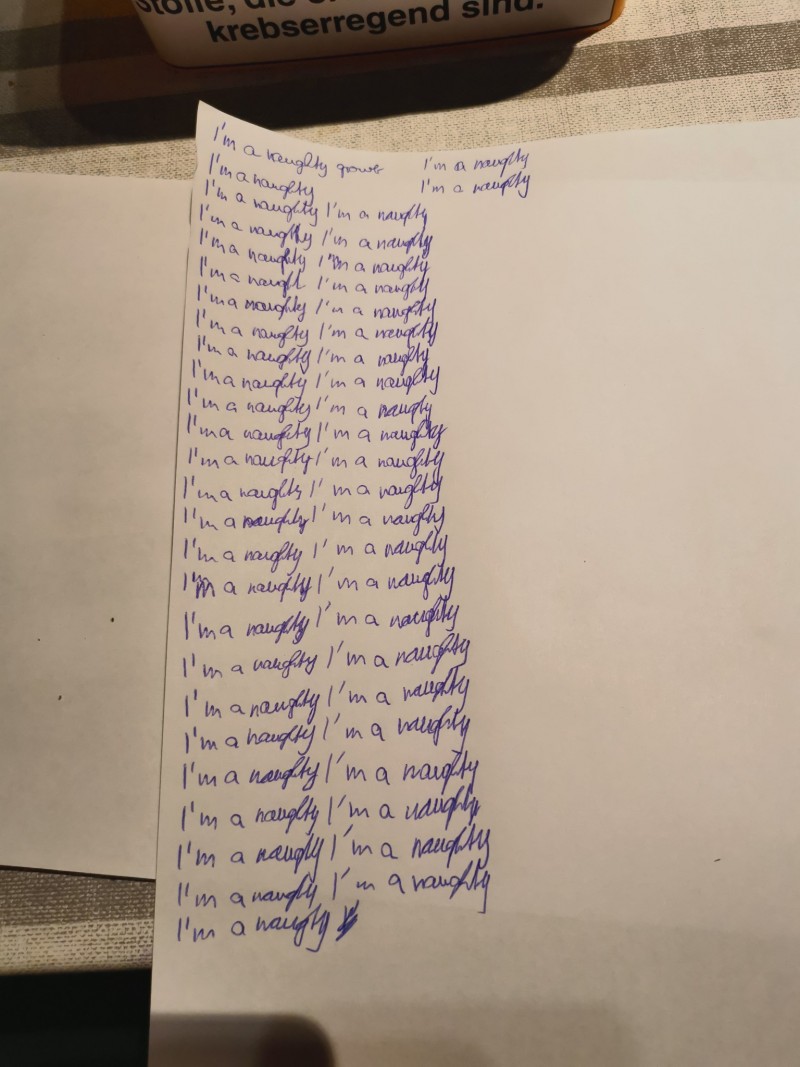 Stoffe, die
krebserregend sind.
I'm a naughty grower I'm a naughty
I'm a naughty I'm a naughty
I'm a naughty I'm a naughty
I'm a naughty I'm a naughty
I'm a naughty I'm a naughty
I'm a naught I'm a naughty
I'm a naughty I'm a naughty
I'm a naughty I'm a naughty
I'm a naughty I'm a naughty
I'm a naughty I'm a naughty
I'm a naughty I'm a naughty
I'm a naughty I'm a naughty
I'm a naughty I'm a naughty
I'm a naughty I'm a naughty
I'm a naughty I'm a naughty
I'm a naughty I'm a naughty
I'm a naughty I'm a naughty
I'm a naughty I'm a naughty
I'm a naughty I'm a naughty
I'm a naughty I'm a naughty
I'm a naughty I'm a naughty
I'm a naughty I'm a naughty
I'm a naughty I'm a naughty
I'm a naughty I'm a naughty
I'm a naughty I'm a naughty
I'm a naughty